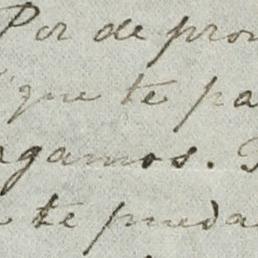 Por de pron
que te pa
gamos.
te pueda